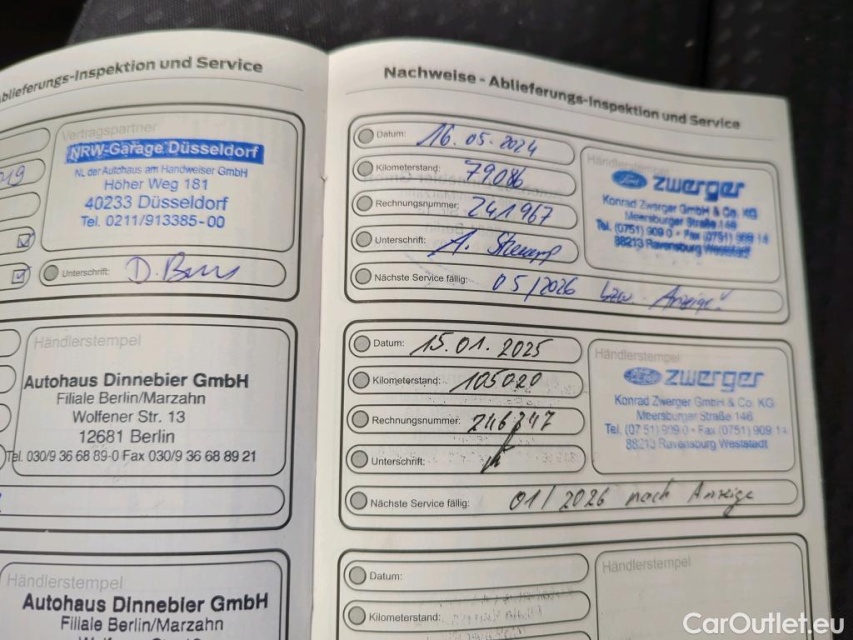 blieferungs-Inspektion und Service
Vertragspartner
NRW-Garage Düsseldorf
NL der Autohaus am Handweiser GmbH
Höher Weg 181
40233 Düsseldorf
Tel. 0211/913385-00
Unterschrift:
Händlerstempel
Autohaus Dinnebier GmbH
Filiale Berlin/Marzahn
Wolfener Str. 13
12681 Berlin
Tel. 030/9 36 68 89-0 Fax 030/9 36 68 89 21
Händlerstempel
Autohaus Dinnebier GmbH
Filiale Berlin/Marzahn
Nachweise - Ablieferungs-Inspektion und Service
Datum: 16.05.2024
Kilometerstand: 79086
Rechnungsnummer: 241967
Unterschrift:
Nächste Service fällig: 05/2026 bzw. Anzeige!
Händlerstempel
Ford zwerger
Konrad Zwerger GmbH & Co. KG
Meersburger Straße 146
Tel. (0751) 909 0 - Fax (0751) 909 14
88213 Ravensburg Weststadt
Datum: 15.01.2025
Kilometerstand: 105020
Rechnungsnummer: 246347
Unterschrift:
Nächste Service fällig: 01/2026 nach Anzeige
Händlerstempel
Ford zwerger
Konrad Zwerger GmbH & Co. KG
Meersburger Straße 146
Tel. (07 51) 909 0 - Fax (0751) 909 14
88213 Ravensburg Weststadt
Datum:
Kilometerstand:
Händlerstempel
CarOutlet.eu